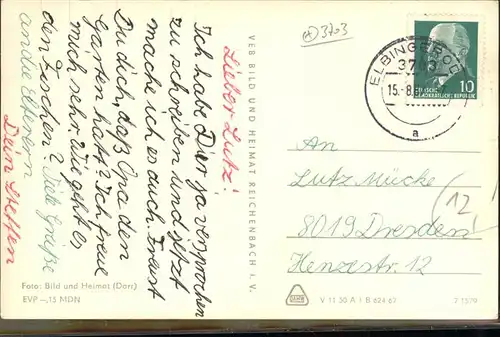 Lieber Lutz!
Ich habe Dir ja versprochen
zu schreiben und jetzt
mache ich es auch. Freust
Du dich, daß Opa den
Garten hat? Ich freue
mich sehr. Wie geht es
den Fischen? Viele Grüße
an die Elferern
Dein Steffen
Foto: Bild und Heimat (Darr)
EVP –,15 MDN
VEB BILD UND HEIMAT REICHENBACH I. V.
(H) 3703
ELBINGEROD
37
15.-8.
a
10
DEUTSCHE
DEMOKRATISCHE REPUBLIK
An
Lutz Mücke
8019 Dresden
Henzestr. 12
12
V 11 50 A 1 B 624 67
7 1529